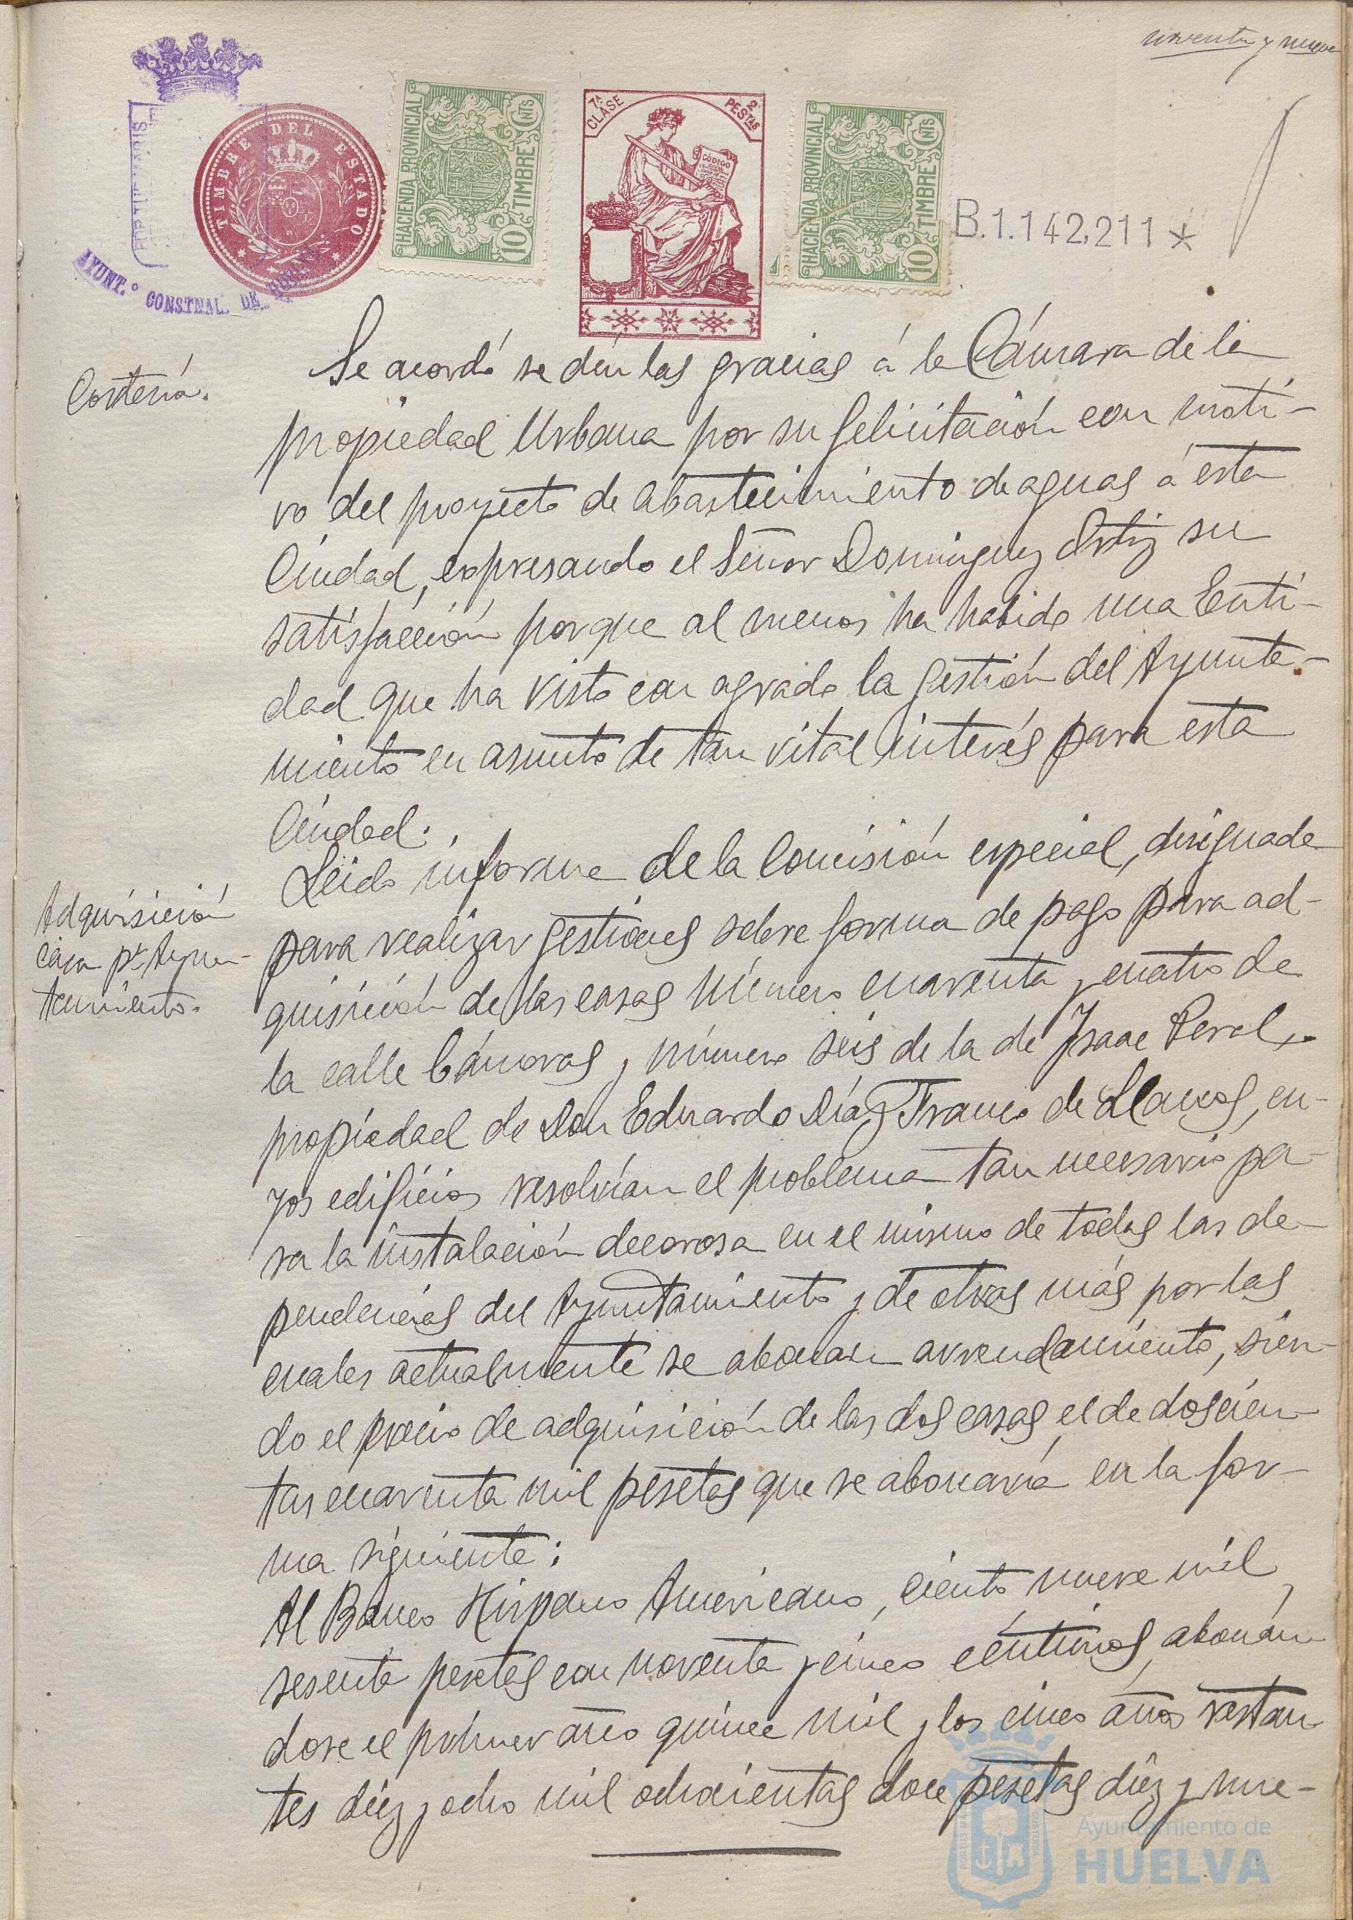 noventa y nueve
TIMBRE DEL ESTADO
HACIENDA PROVINCIAL
10 CNTS TIMBRE
7ª CLASE
2 PESTAS
CÓDIGO
HACIENDA PROVINCIAL
10 CNTS TIMBRE
B.1.142,211*
AYUNT.º CONSTNAL. DE
Cortesía.
Se acordó se den las gracias á la Cámara de la
propiedad Urbana por su felicitación con moti-
vo del proyecto de abastecimiento de aguas á esta
Ciudad, expresando el Señor Dominguez Ortiz su
satisfacción porque al menos ha habido una Enti-
dad que ha visto con agrado la gestión del Ayunta-
miento en asunto de tan vital interés para esta
Ciudad.
Adquisición
casa pª Ayun-
tamiento.
Leido informe de la Comisión especial, designada
para realizar gestiones sobre forma de pago para ad-
quisición de las casas número cuarenta y cuatro de
la calle Cánovas y número seis de la de Isaac Peral,
propiedad de Don Eduardo Díaz Franco de Llanos, cu-
yos edificios resolvían el problema tan necesario pa-
ra la instalación decorosa en el mismo de todas las de-
pendencias del Ayuntamiento y de otras más por las
cuales actualmente se abonan arrendamiento, sien-
do el precio de adquisición de las dos casas el de doscien-
tas cuarenta mil pesetas que se abonaría en la for-
ma siguiente:
Al Banco Hispano Americano, ciento nueve mil
sesenta pesetas con noventa y cinco céntimos, abonán
dose el primer año quince mil y los cinco años restan-
tes diez y ocho mil ochocientas doce pesetas diez y nue-
Ayuntamiento de
HUELVA